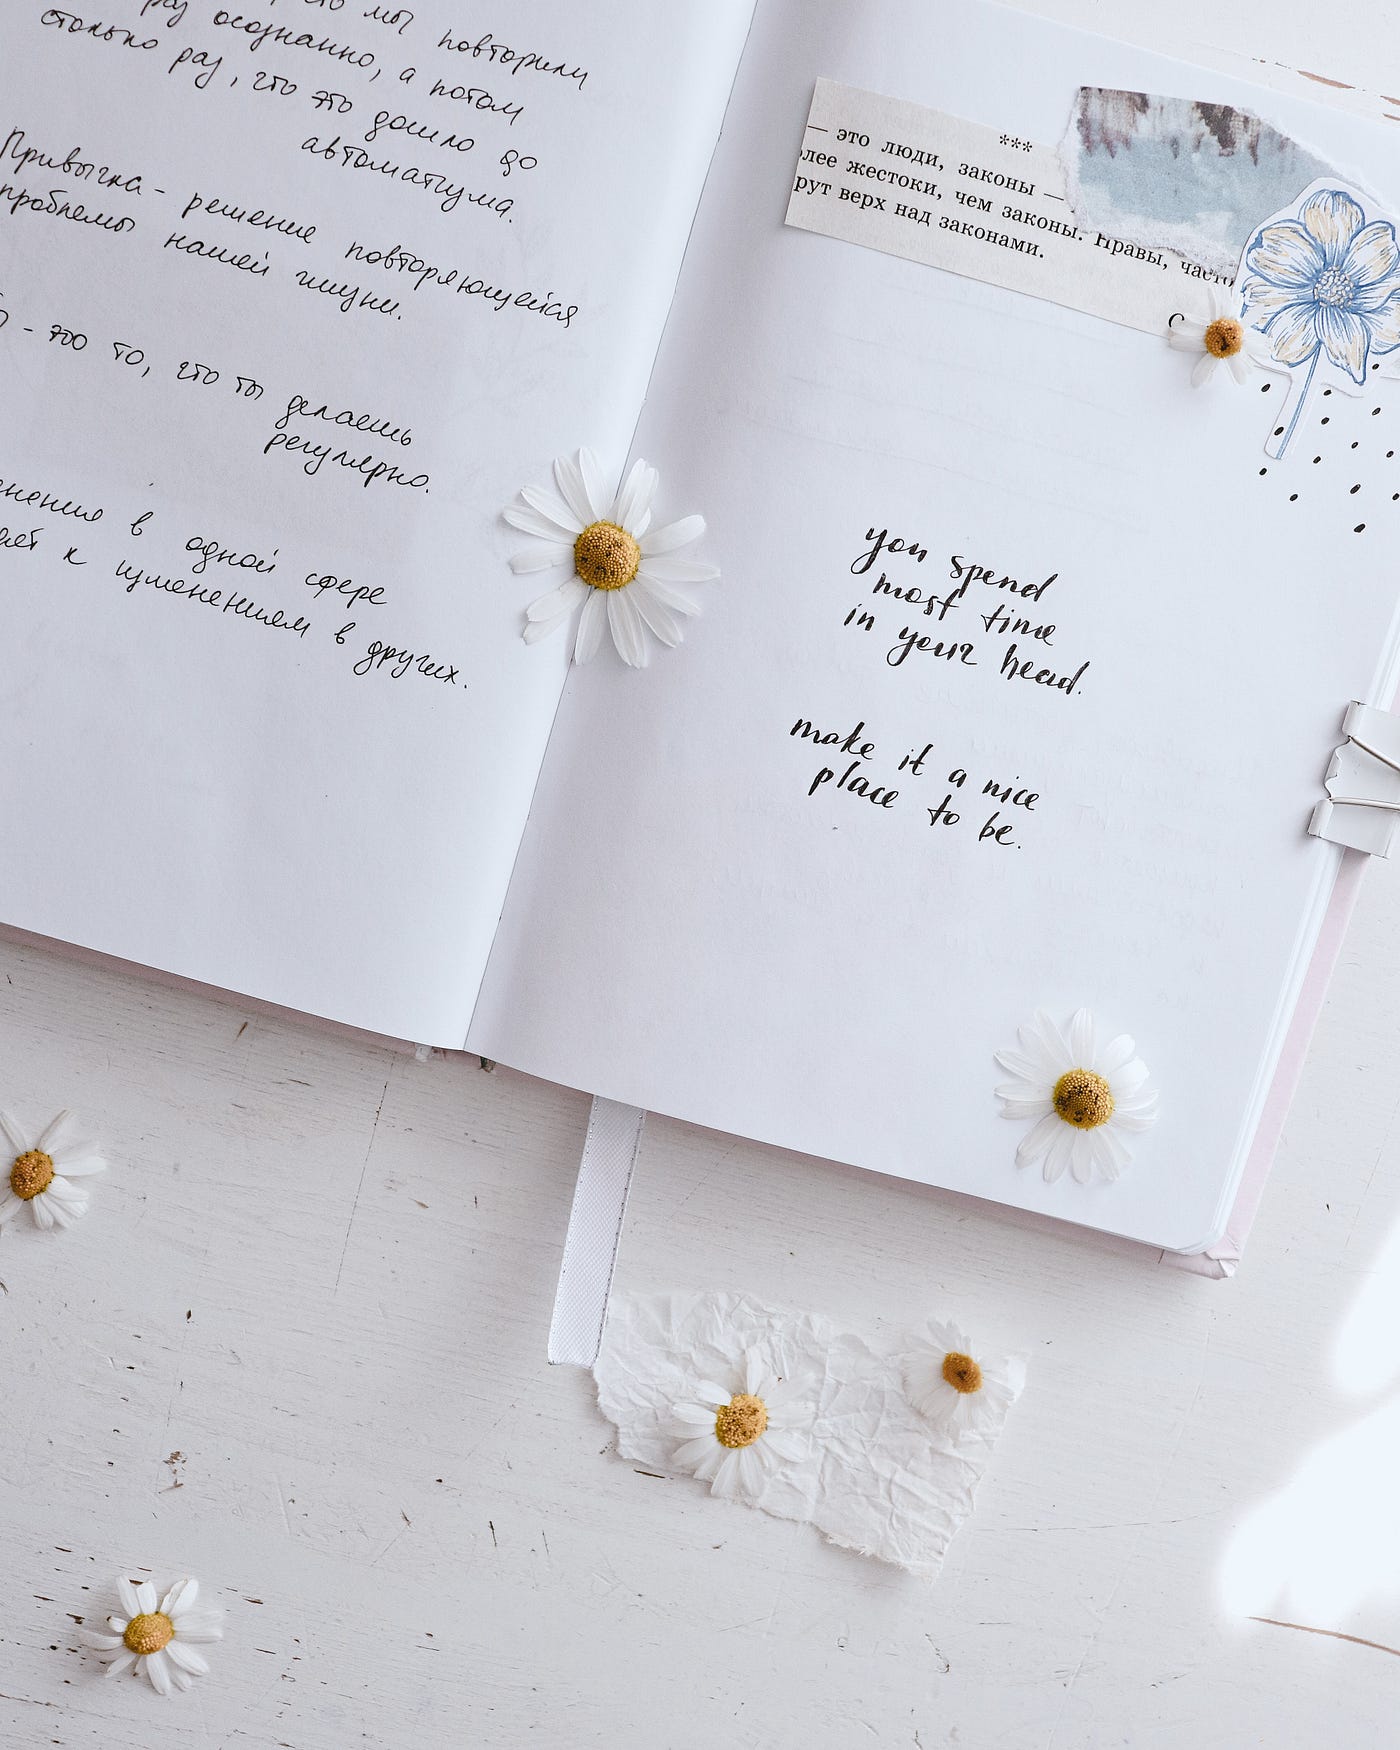 что мы повторили
раз осознанно, а потом
столько раз, что это дошло до
автоматизма.
Привычка - решение повторяющейся
проблемы нашей жизни.
- это то, что ты делаешь
регулярно.
в одной сфере
к изменениям в других.
***
— это люди, законы —
жестоки, чем законы. Нравы,
верх над законами.
you spend
most time
in your head.
make it a nice
place to be.